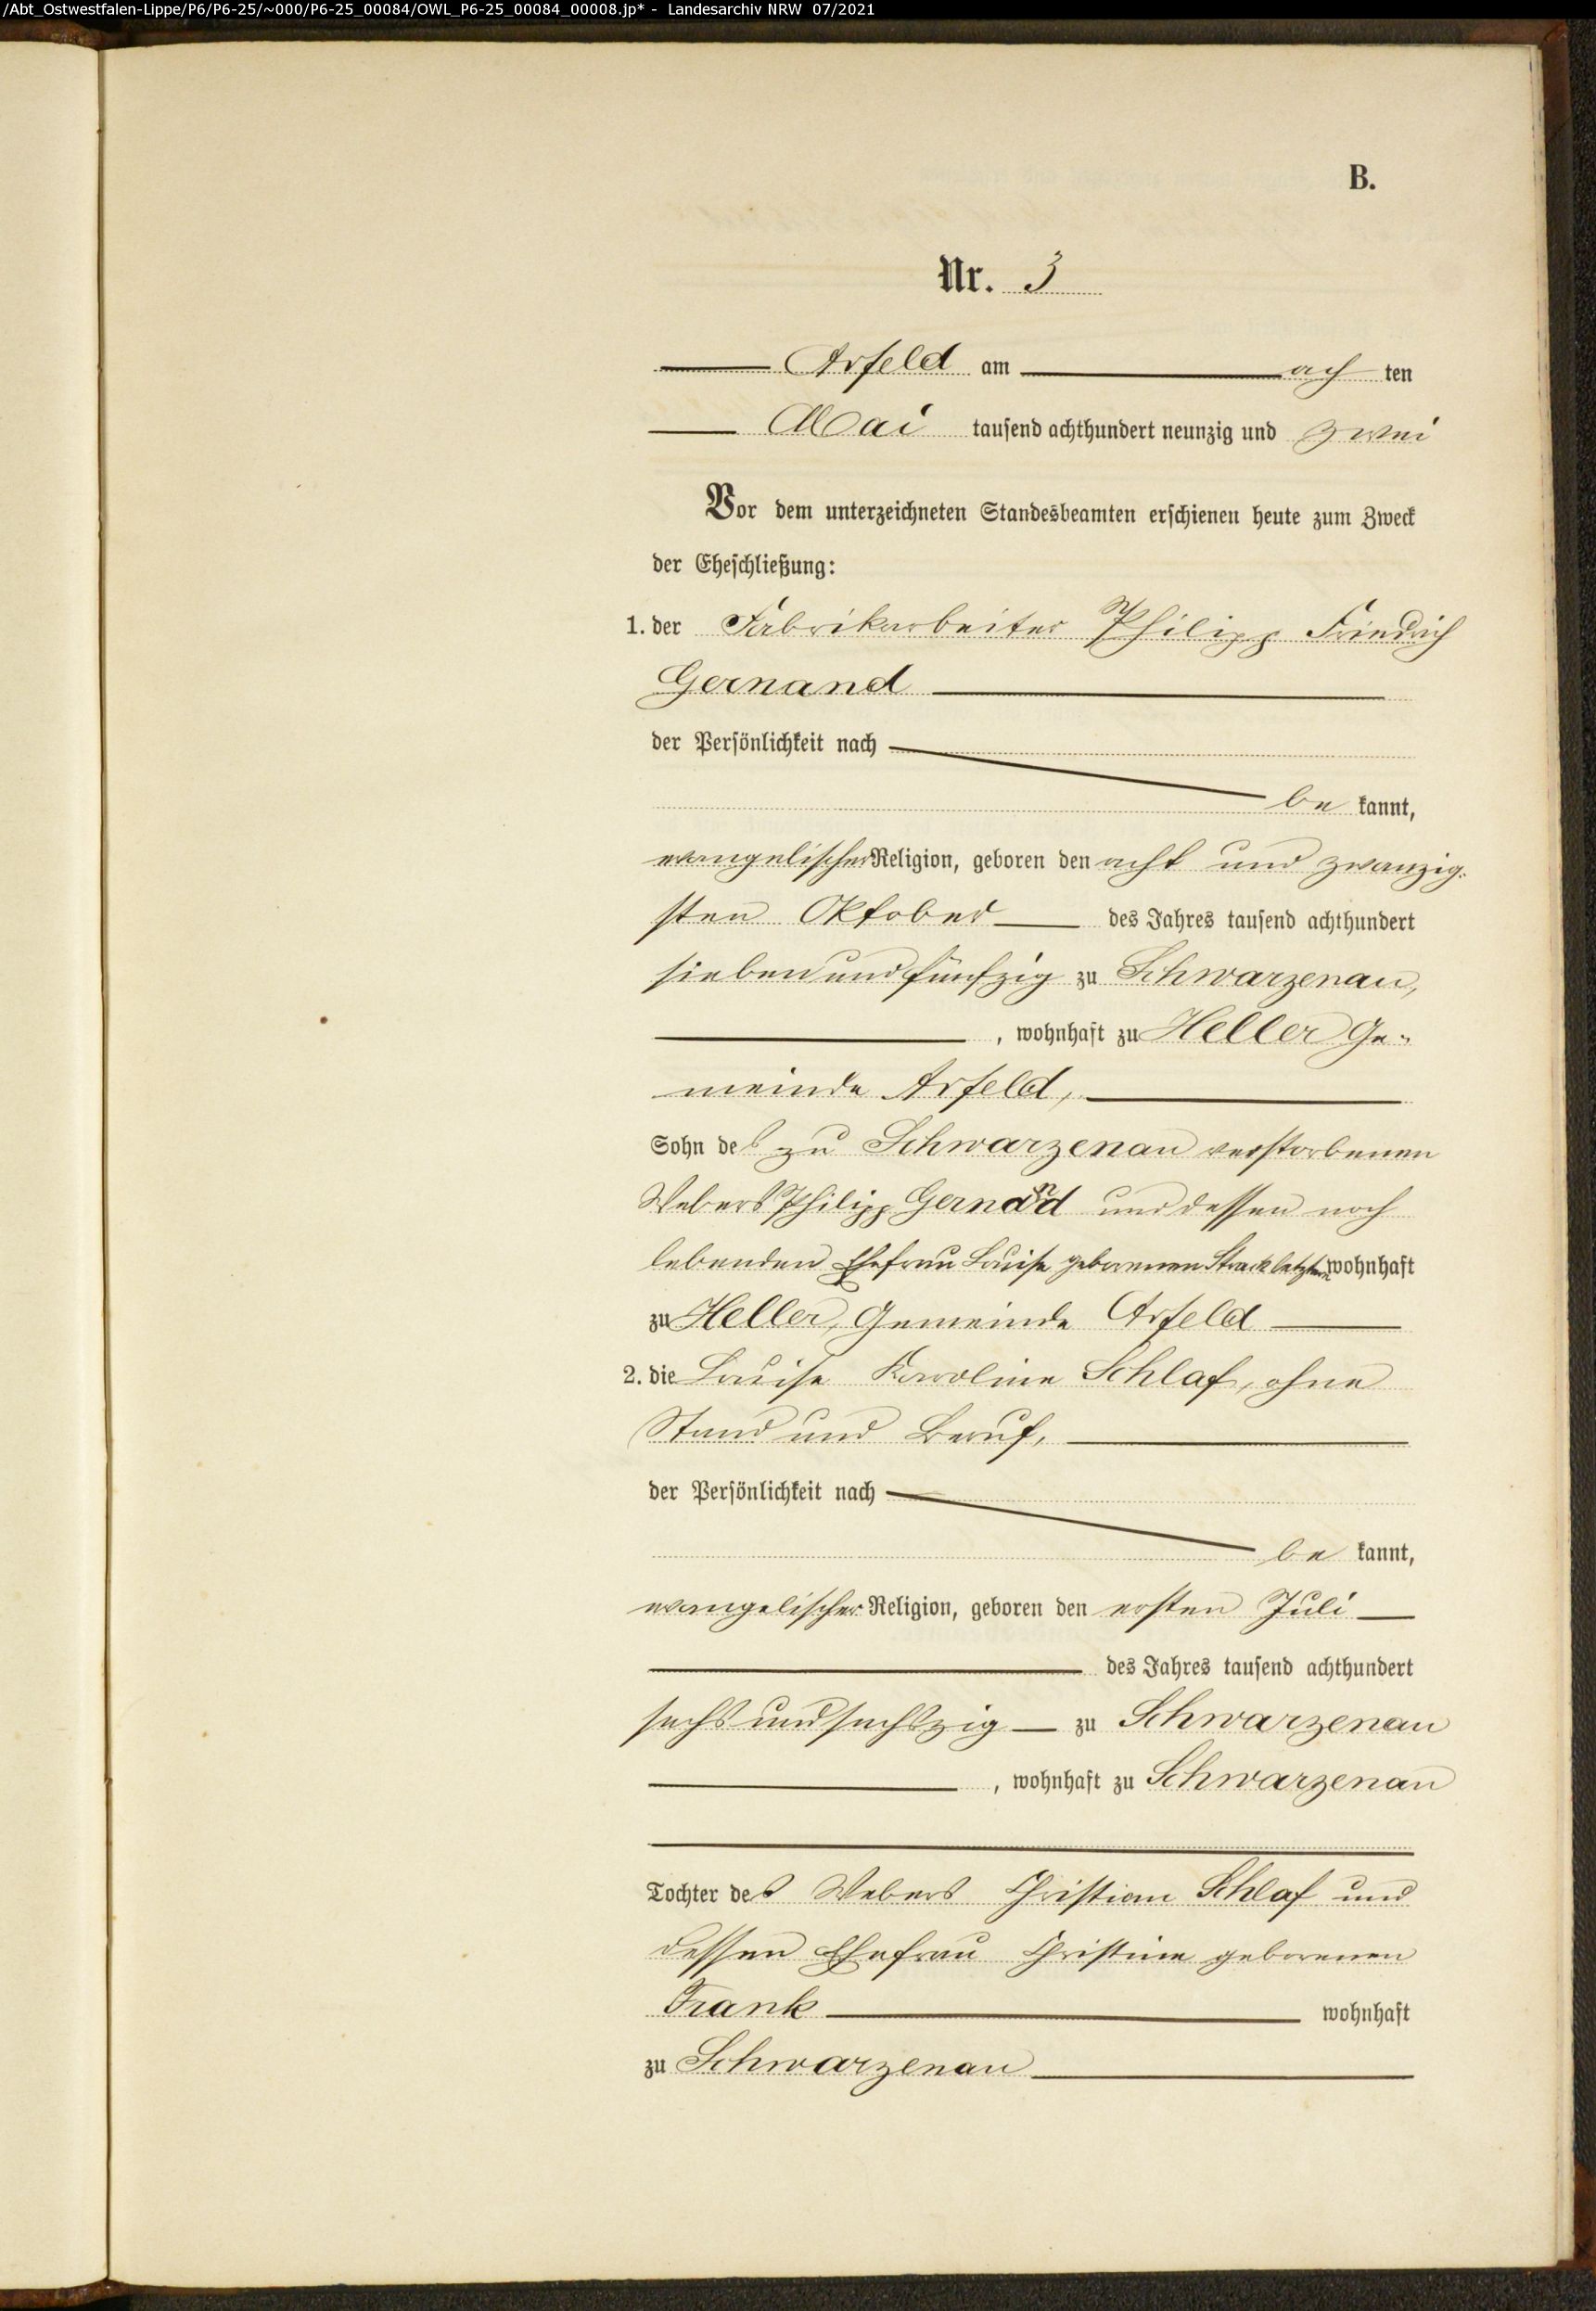 /Abt_Ostwestfalen-Lippe/P6/P6-25/~000/P6-25_00084/OWL_P6-25_00084_00008.jp* - Landesarchiv NRW 07/2021
B.
Nr. 3
Arfeld am ach ten
Mai tausend achthundert neunzig und zwei
Vor dem unterzeichneten Standesbeamten erschienen heute zum Zweck
der Eheschließung:
1. der Fabrikarbeiter Philipp Friedrich
Gernand
der Persönlichkeit nach
be kannt,
evangelischer Religion, geboren den acht und zwanzig-
sten Oktober des Jahres tausend achthundert
sieben und fünfzig zu Schwarzenau,
, wohnhaft zu Heller Ge-
meinde Arfeld,
Sohn des zu Schwarzenau verstorbenen
Webers Philipp Gernand und dessen noch
lebenden Ehefrau Louise geborenen Strack letztere wohnhaft
zu Heller, Gemeinde Arfeld
2. die Louise Karoline Schlaf, ohne
Stand und Beruf,
der Persönlichkeit nach
be kannt,
evangelischer Religion, geboren den ersten Juli
des Jahres tausend achthundert
sechs und sechszig zu Schwarzenau
, wohnhaft zu Schwarzenau
Tochter des Webers Christian Schlaf und
dessen Ehefrau Christine geborenen
Frank wohnhaft
zu Schwarzenau